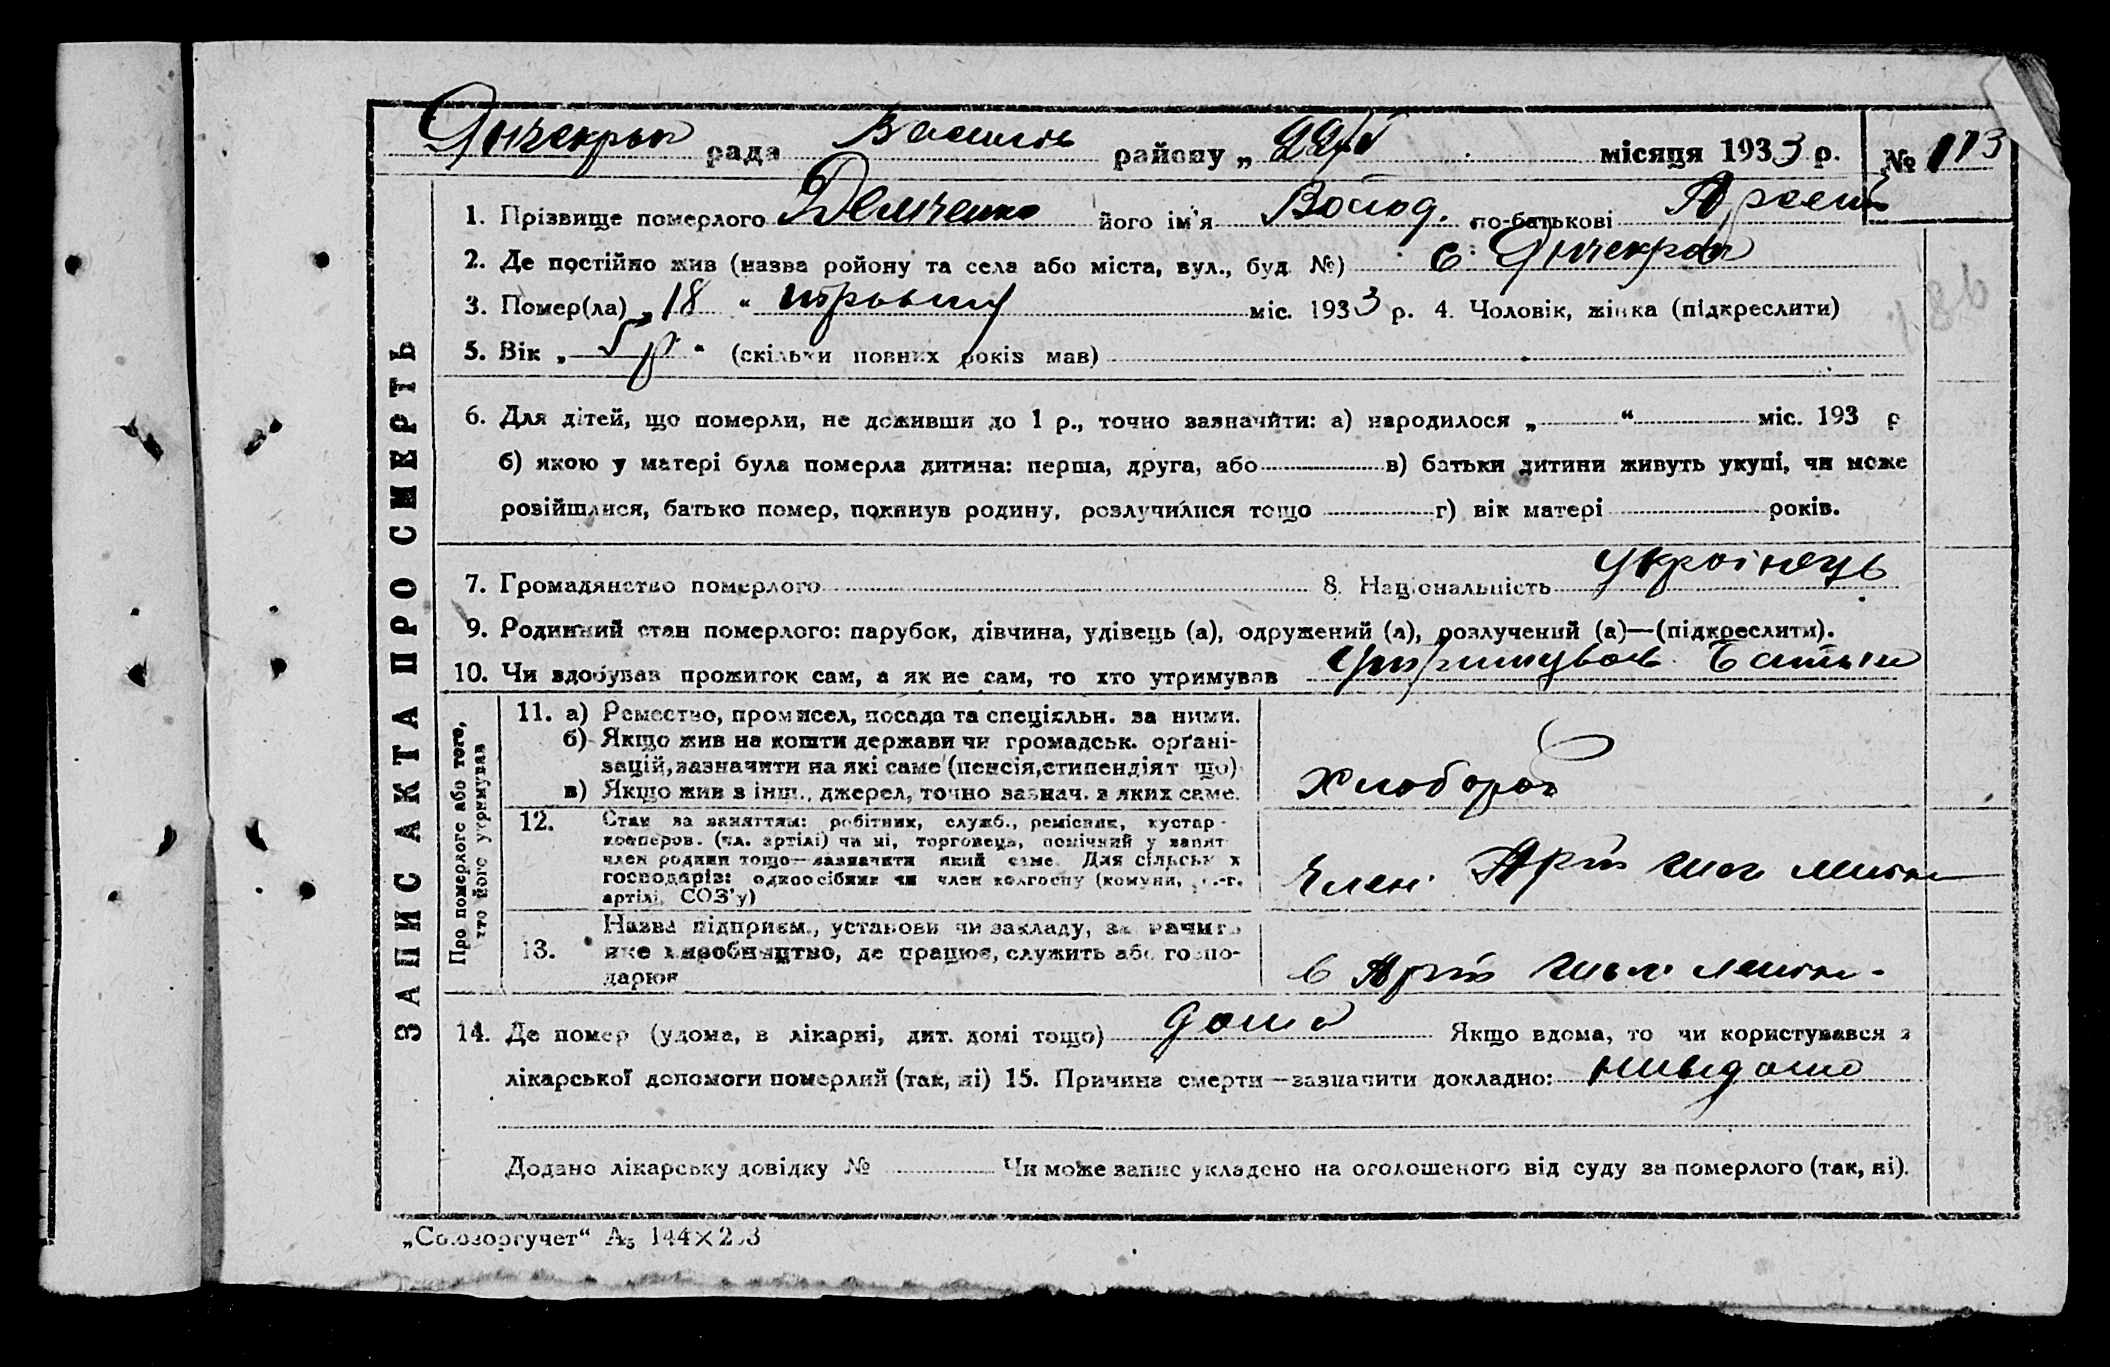 Янчекрак рада Василів району „ 22/V місяця 1933 р. № 113
1. Прізвище померлого Демченко його ім'я Волод. по-батькові Арсент
2. Де постійно жив (назва ройону та села або міста, вул., буд. №) с. Янчекрак
3. Помер(ла) „ 18 “ травня міс. 1933 р. 4. Чоловік, жінка (підкреслити)
5. Вік „ 5 р. “ (скільки повних років мав)
6. Для дітей, що померли, не доживши до 1 р., точно зазначити: а) народилося „ “ міс. 193 р
б) якою у матері була померла дитина: перша, друга, або в) батьки дитини живуть укупі, чи може
розійшлися, батько помер, покинув родину, розлучилися тощо г) вік матері років.
7. Громадянство померлого 8. Національність Украінець
9. Родинний стан померлого: парубок, дівчина, удівець (а), одружений (а), розлучений (а)—(підкреслити).
10. Чи вдобував прожиток сам, а як не сам, то хто утримував Утримував Батьки
ЗАПИС АКТА ПРО СМЕРТЬ
Про померлого або того,
хто його утримував
11. а) Ремество, промисел, посада та спеціяльн. за ними.
б) Якщо жив на кошти держави чи громадськ. орґані-
зацій, зазначити на які саме (пенсія, стипендіят що)
в) Якщо жив з інш., джерел, точно зазнач. з яких саме.
Хлобороб
12. Стан за заняттям: робітник, служб., ремісник, кустар-
кооперов. (чл. артілі) чи ні, торговець, помічний у занят
член родини тощо—зазначити який саме. Для сільськ х
господарів: одноосібник чи член колгоспу (комуни, с.-г.
артілі, СОЗ'у)
Член Арт
13. Назва підприєм., установи чи закладу, зазначить
яке виробництво, де працює, служить або госпо-
дарює
в Арт
14. Де помер (удома, в лікарні, дит. домі тощо) дома Якщо вдома, то чи користувався з
лікарської допомоги померлий (так, ні) 15. Причина смерти—зазначити докладно: нивідомо
Додано лікарську довідку № Чи може запис укладено на оголошеного від суду за померлого (так, ні).
„Союзоргучет“ А₅ 144×203